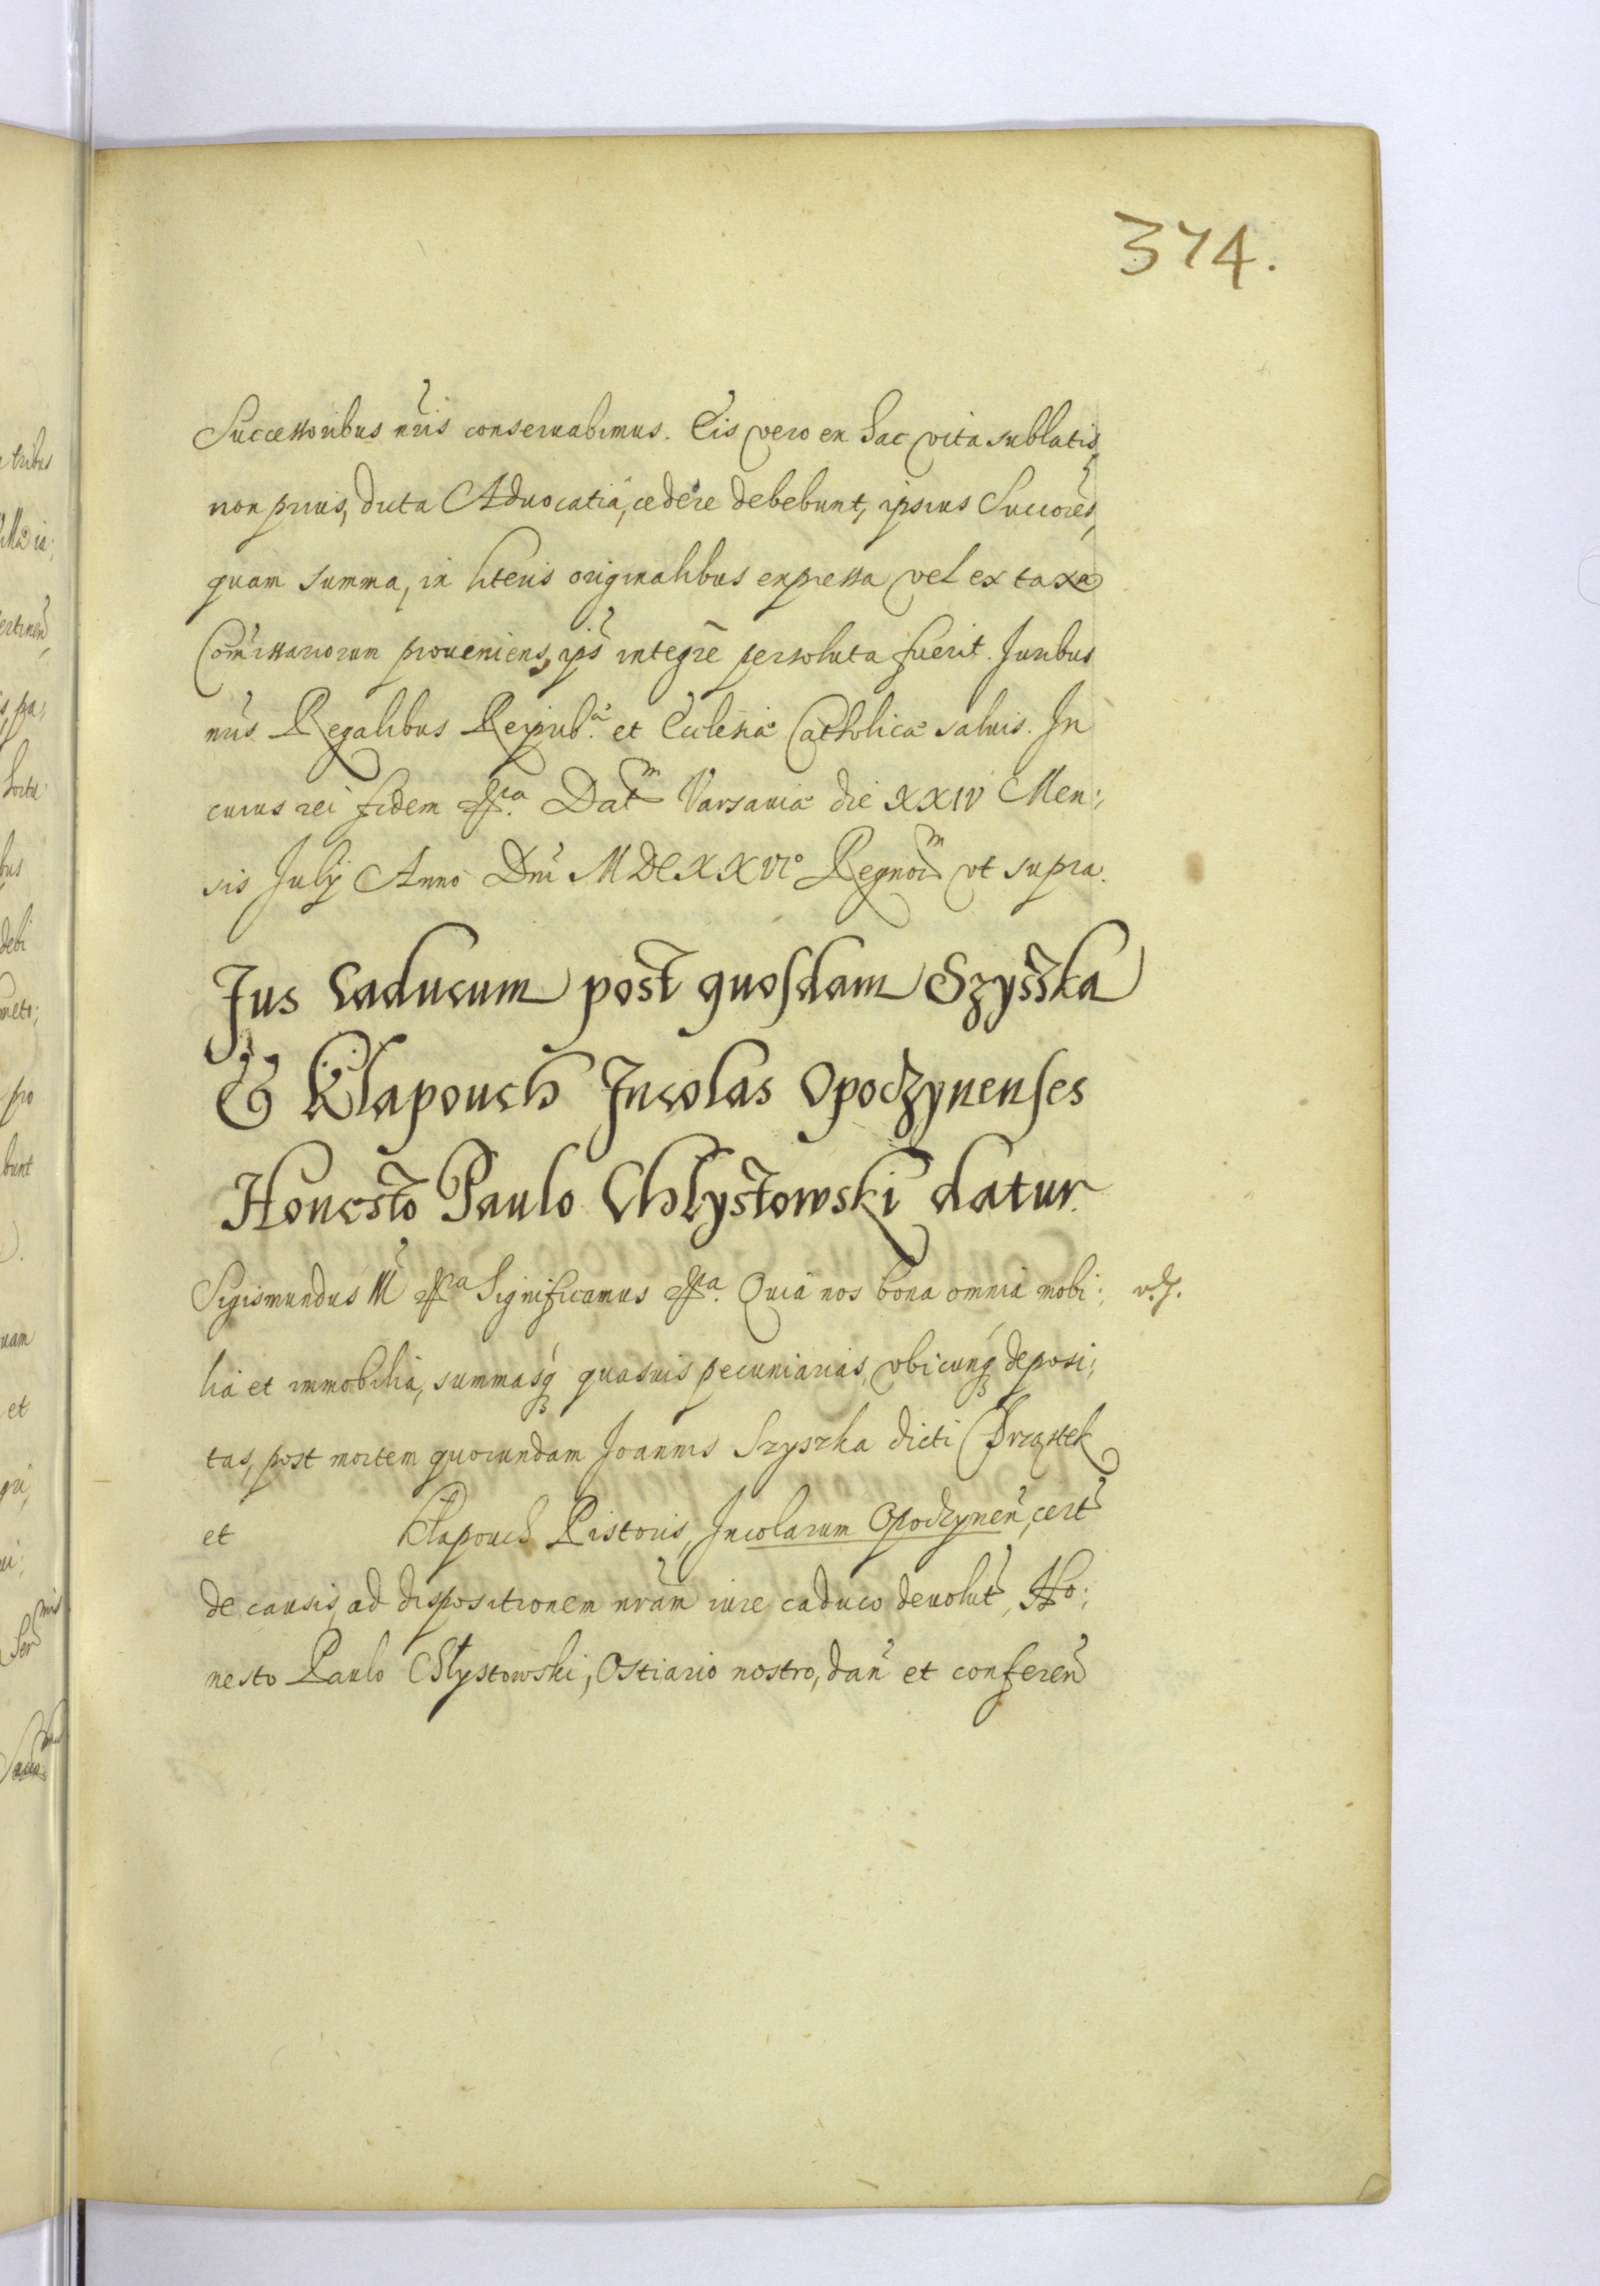 374.
Successoribus nr̃is conseruabimus. Eis vero ex hac vita sublatis,
non prius, dicta Aduocatia, cedere debebunt, ipsius Succores̃,
quam summa, in literis originalibus expressa vel ex taxa
Com̃issariorum proueniens, ips̃ integre persoluta fuerit. Juribus
nr̃is Regalibus Reipub.ᵃ et Ecclesiæ Catholicæ saluis. In
cuius rei fidem &ca. Datm Varsauiæ die XXIV Men:,
sis July Anno Dnĩ MDCXXVIº Regnorm̃ vt supra.
Jus Caducum post quosdam Szyszka
& Klapouch Incolas Opoczynenses
Honesto Paulo Chłystowski datur
Sigismundus III &ca Significamus &ca. Quia nos bona omnia mobi:,
lia et immobilia, summasq́ʒ quasuis pecuniarias, vbicunq́ʒ deposi:,
tas, post mortem quorundam Joannis Szyszka dicti Prząstek
et Klapouch Pistoris, Incolarum Opoczyneñ, cert̃
de causis, ad dispositionem nrãm iure caduco deuolut̃, Ho:,
nesto Paulo Chłystowski, Ostiario nostro, dañ et confereñ